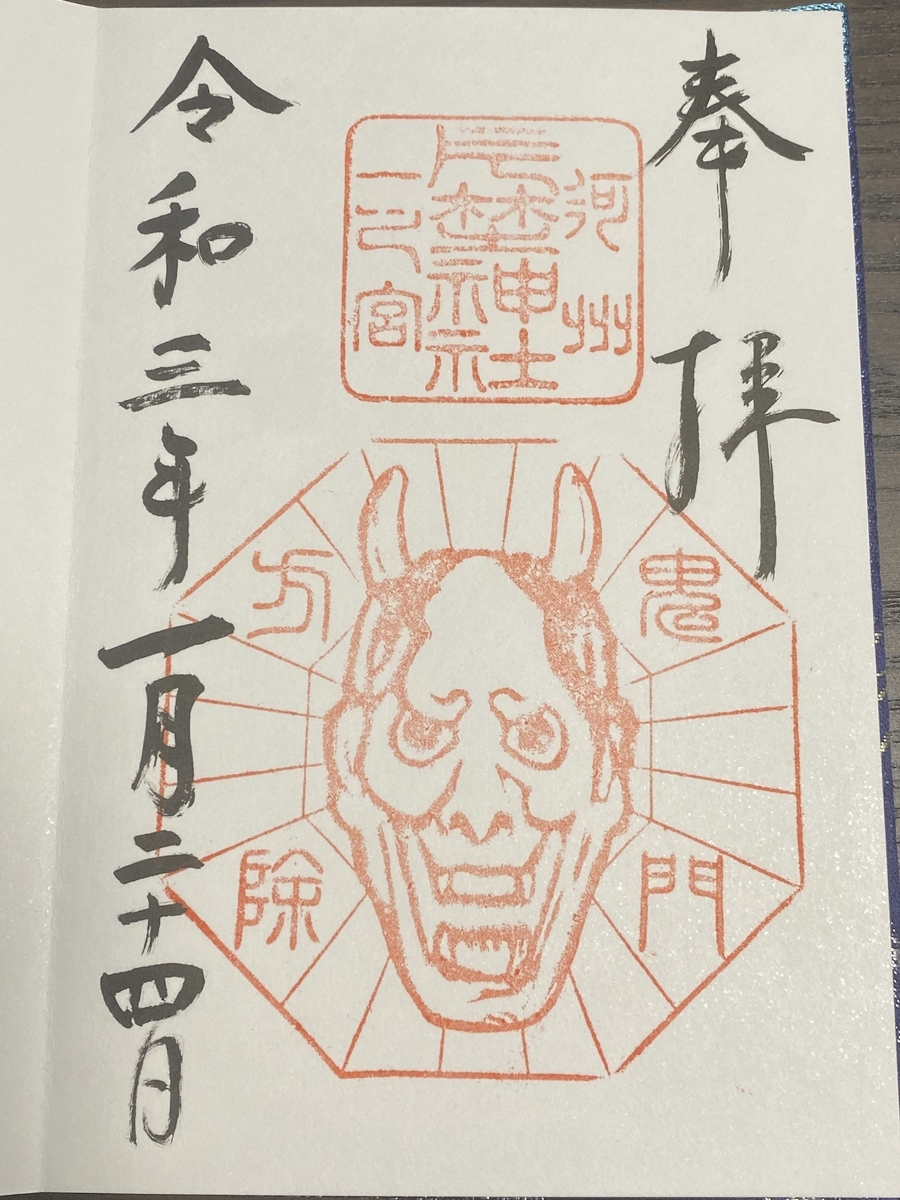 奉拝
河州
片埜神社
一之宮
鬼門
方除
令和三年一月二十四日